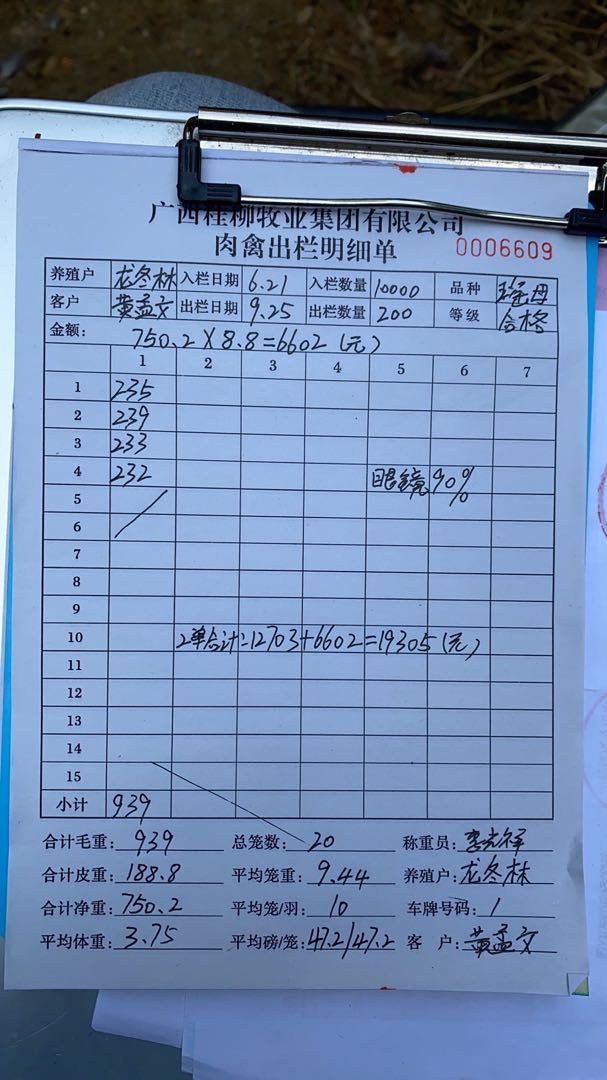 广西桂柳牧业集团有限公司
肉禽出栏明细单 0006609
养殖户 龙冬林 入栏日期 6.21 入栏数量 10000 品种 瑶母
客户 黄孟文 出栏日期 9.25 出栏数量 200 等级 合格
金额: 750.2×8.8=6602(元)
1 2 3 4 5 6 7
1 235
2 239
3 233
4 232 眼镜90%
5
6
7
8
9
10 2单合计:12703+6602=19305(元)
11
12
13
14
15
小计 939
合计毛重: 939 总笼数: 20 称重员: 李光祥
合计皮重: 188.8 平均笼重: 9.44 养殖户: 龙冬林
合计净重: 750.2 平均笼/羽: 10 车牌号码: 1
平均体重: 3.75 平均磅/笼: 47.2/47.2 客户: 黄孟文